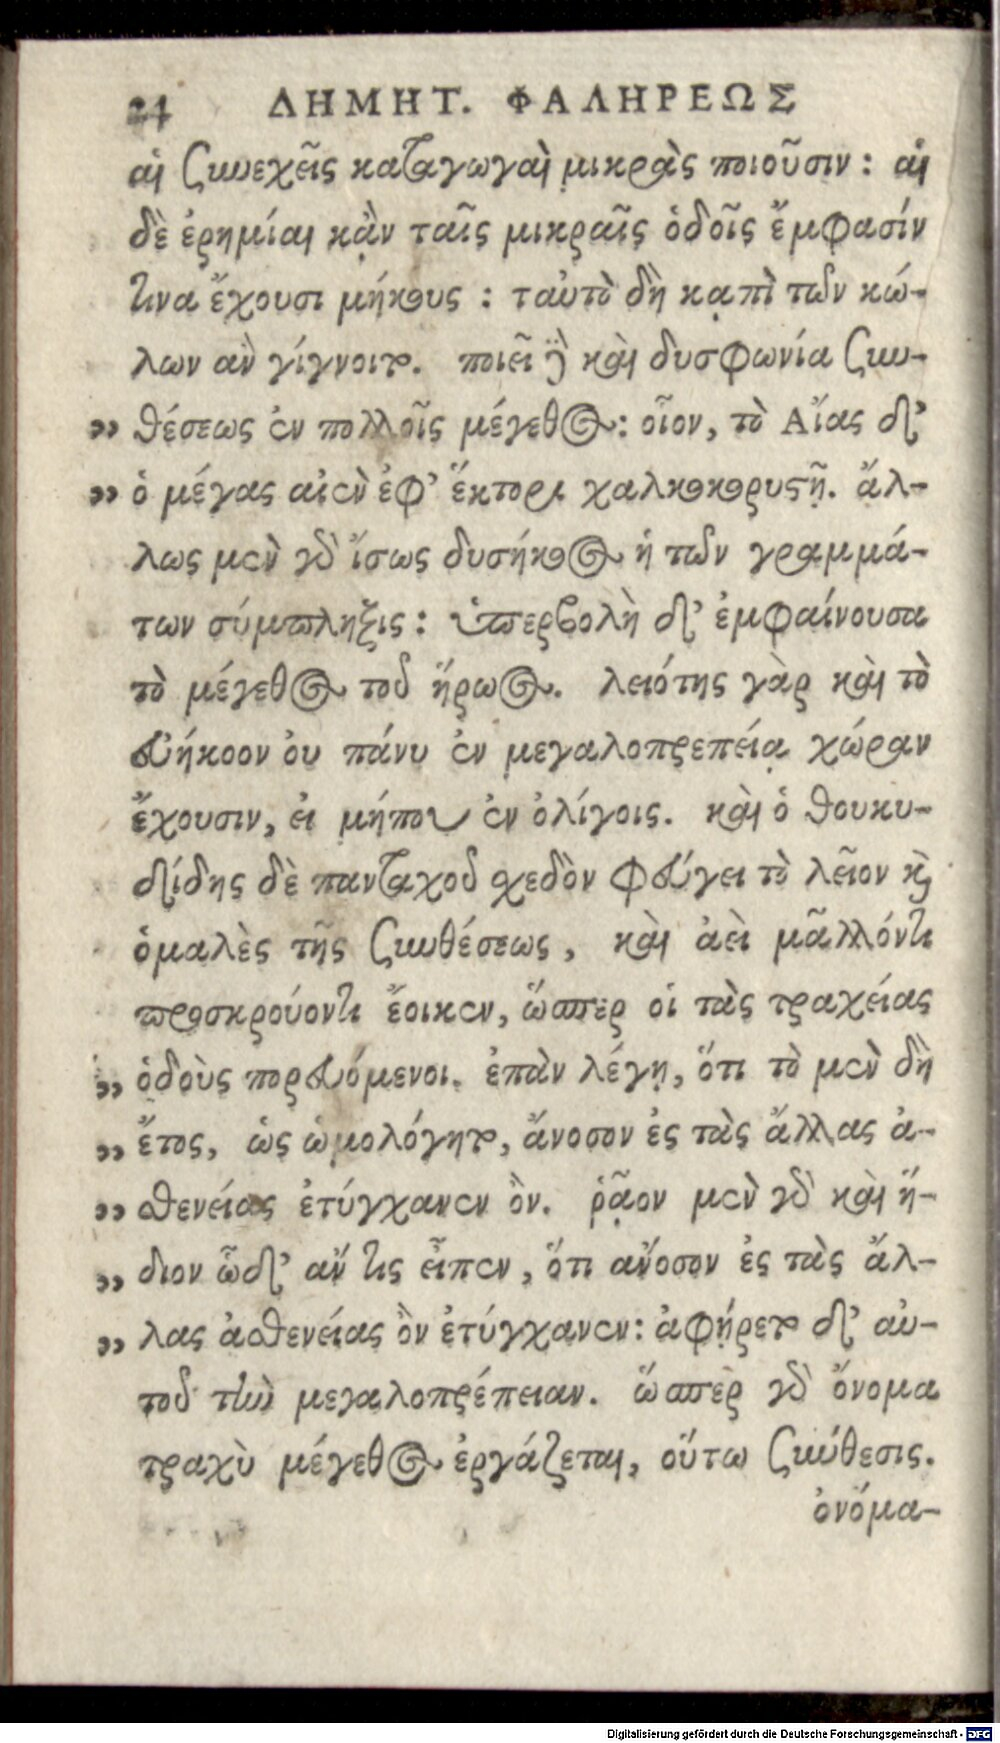 24 ΔΗΜΗΤ. ΦΑΛΗΡΕΩΣ
αἱ συνεχεῖς καταγωγαὶ μικρὰς ποιοῦσιν: αἱ
δὲ ἐρημίαι κᾂν ταῖς μικραῖς ὁδοῖς ἔμφασίν
τινα ἔχουσι μήκους : ταὐτὸ δὴ κᾳπὶ τῶν κώ-
λων ἂν γίγνοιτο. ποιεῖ δὲ καὶ δυσφωνία συν-
„ θέσεως ἐν πολλοῖς μέγεθος: οἷον, τὸ Αἴας δ'
„ ὁ μέγας αἰὲν ἐφ' ἕκτορι χαλκοκορυστῇ. ἄλ-
λως μὲν γὸ ἴσως δυσήκοος ἡ τῶν γραμμά-
των σύμπληξις: ὑπερβολὴ δ' ἐμφαίνουσα
τὸ μέγεθος τοῦ ἥρωος. λειότης γὰρ καὶ τὸ
εὐήκοον ὀυ πάνυ ἐν μεγαλοπρεπείᾳ χώραν
ἔχουσιν, ἐι μήπου ἐν ὀλίγοις. καὶ ὁ θουκυ-
δίδης δὲ πανταχοῦ σχεδὸν φεύγει τὸ λεῖον καὶ
ὁμαλὲς τῆς συνθέσεως, καὶ ἀεὶ μᾶλλόντι
προσκρούοντι ἔοικεν, ὥσπερ οἱ τὰς τραχείας
„ ὁδοὺς πορευόμενοι. ἐπὰν λέγῃ, ὅτι τὸ μὲν δὴ
„ ἔτος, ὡς ὡμολόγητο, ἄνοσον ἐς τὰς ἄλλας ἀ-
„ σθενείας ἐτύγχανεν ὂν. ῥᾷον μὲν γὸ καὶ ἥ-
„ διον ὧδ' ἄν τις εἶπεν, ὅτι ἄνοσον ἐς τὰς ἄλ-
„ λας ἀσθενείας ὂν ἐτύγχανεν: ἀφῄρετο δ' αὐ-
τοῦ τὴν μεγαλοπρέπειαν. ὥσπερ γὸ ὄνομα
τραχὺ μέγεθος ἐργάζεται, οὕτω σύνθεσις.
ὀνόμα-
Digitalisierung gefördert durch die Deutsche Forschungsgemeinschaft - DFG